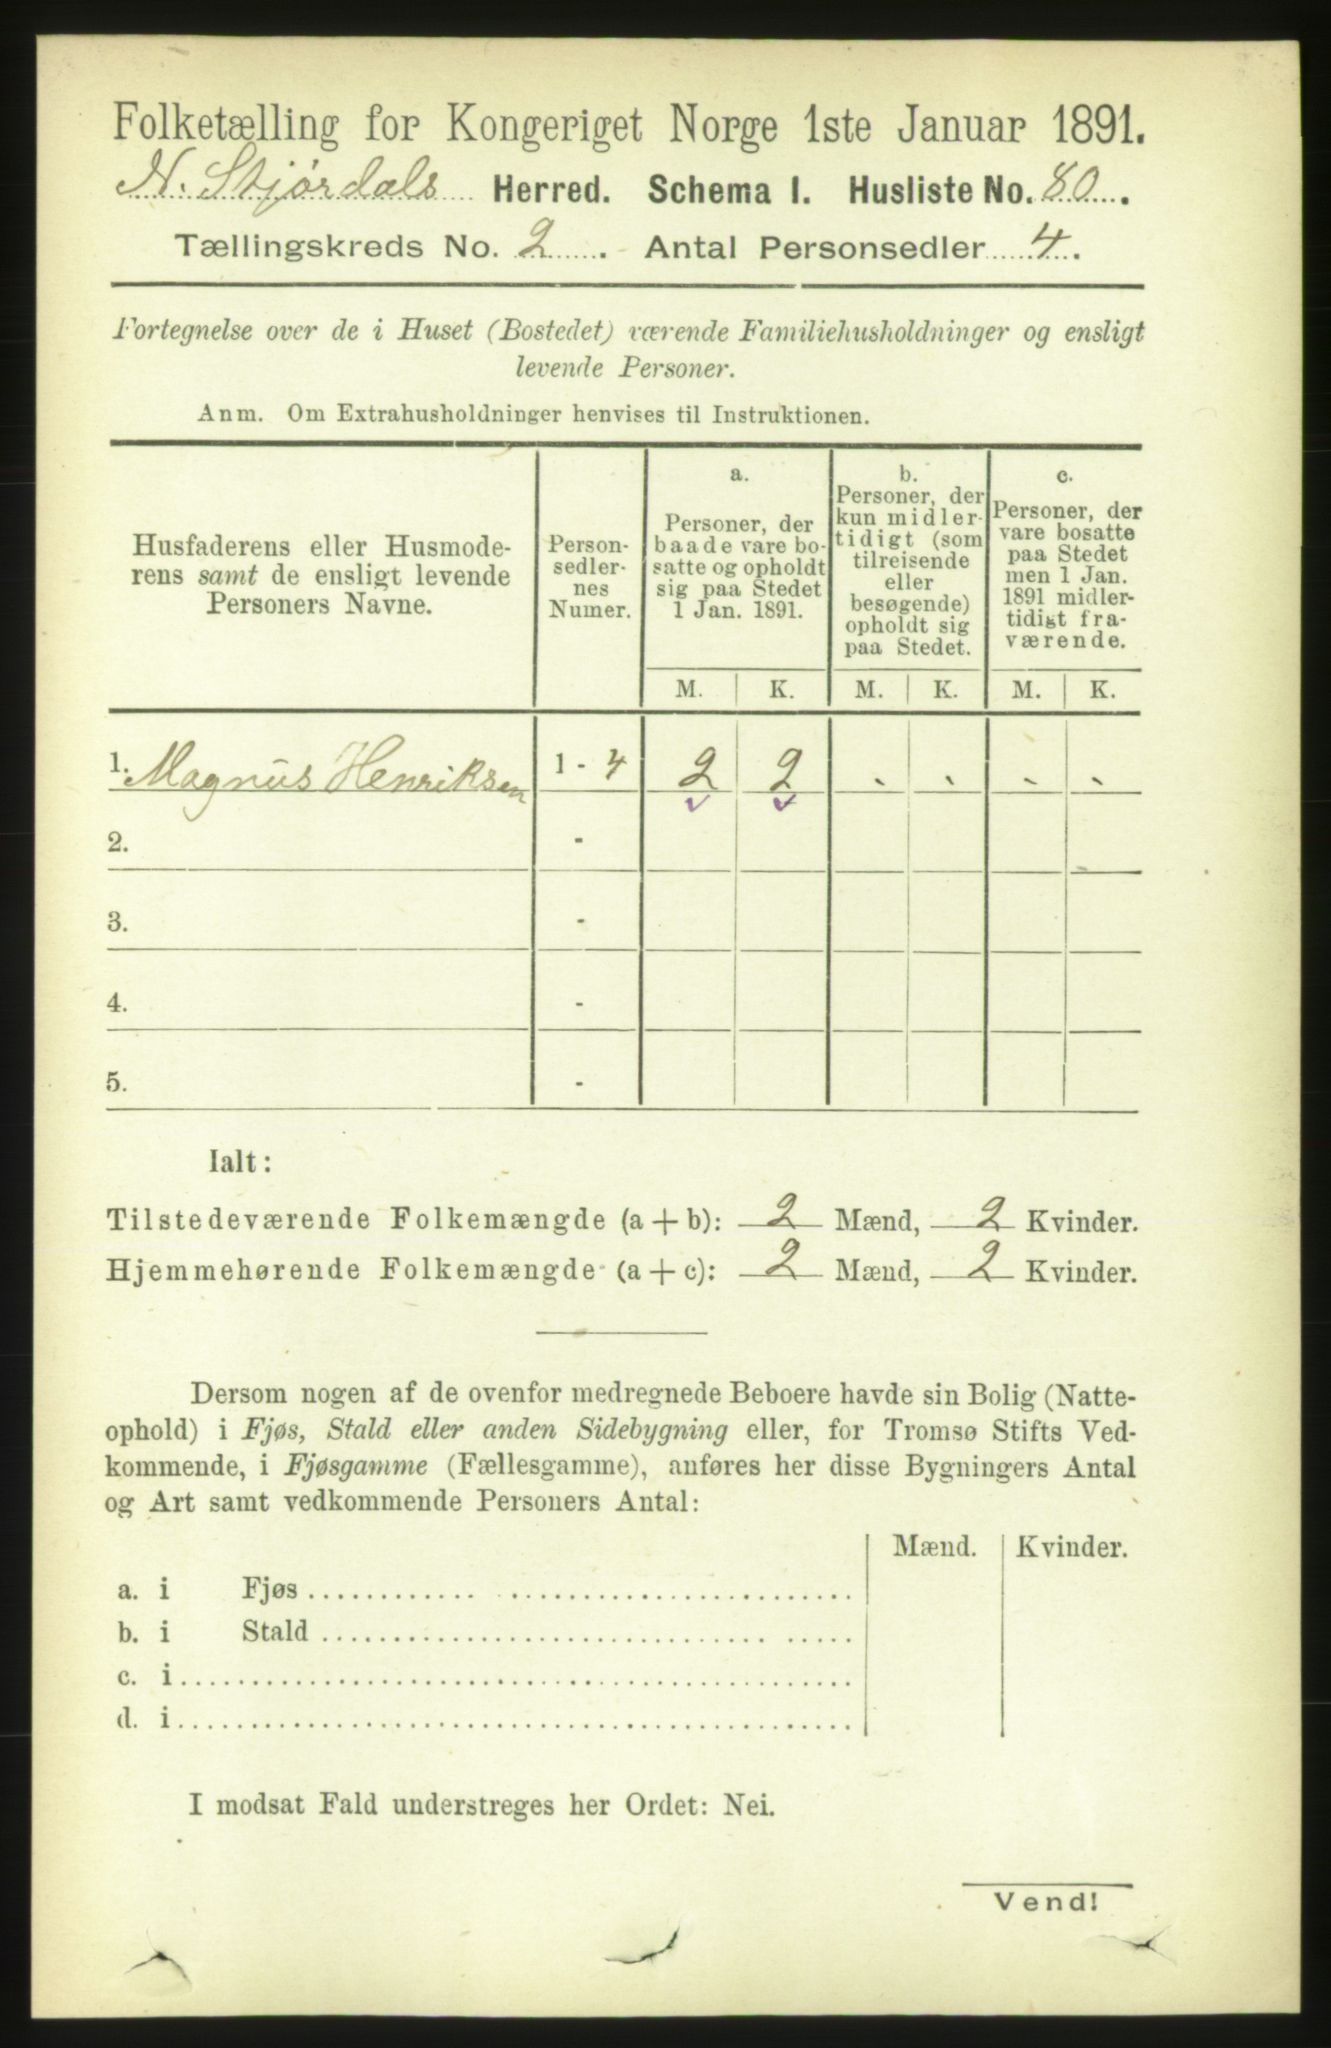 Folketælling for Kongeriget Norge 1ste Januar 1891.
N. Stjørdals Herred. Schema I. Husliste No. 80.
Tællingskreds No. 2. Antal Personsedler 4.
Fortegnelse over de i Huset (Bostedet) værende Familiehusholdninger og ensligt
levende Personer.
Anm. Om Extrahusholdninger henvises til Instruktionen.
Husfaderens eller Husmode-
rens samt de ensligt levende
Personers Navne.
Person-
sedler-
nes
Numer.
a.
Personer, der
baade vare bo-
satte og opholdt
sig paa Stedet
1 Jan. 1891.
b.
Personer, der
kun midler-
tidigt (som
tilreisende
eller
besøgende)
opholdt sig
paa Stedet.
c.
Personer, der
vare bosatte
paa Stedet
men 1 Jan.
1891 midler-
tidigt fra-
værende.
M. K. M. K. M. K.
1. Magnus Henriksen 1 - 4 2 2 - - - -
2. -
3. -
4. -
5. -
Ialt:
Tilstedeværende Folkemængde (a + b): 2 Mænd, 2 Kvinder.
Hjemmehørende Folkemængde (a + c): 2 Mænd, 2 Kvinder.
Dersom nogen af de ovenfor medregnede Beboere havde sin Bolig (Natte-
ophold) i Fjøs, Stald eller anden Sidebygning eller, for Tromsø Stifts Ved-
kommende, i Fjøsgamme (Fællesgamme), anføres her disse Bygningers Antal
og Art samt vedkommende Personers Antal:
Mænd. Kvinder.
a. i Fjøs
b. i Stald
c. i
d. i
I modsat Fald understreges her Ordet: Nei.
Vend!